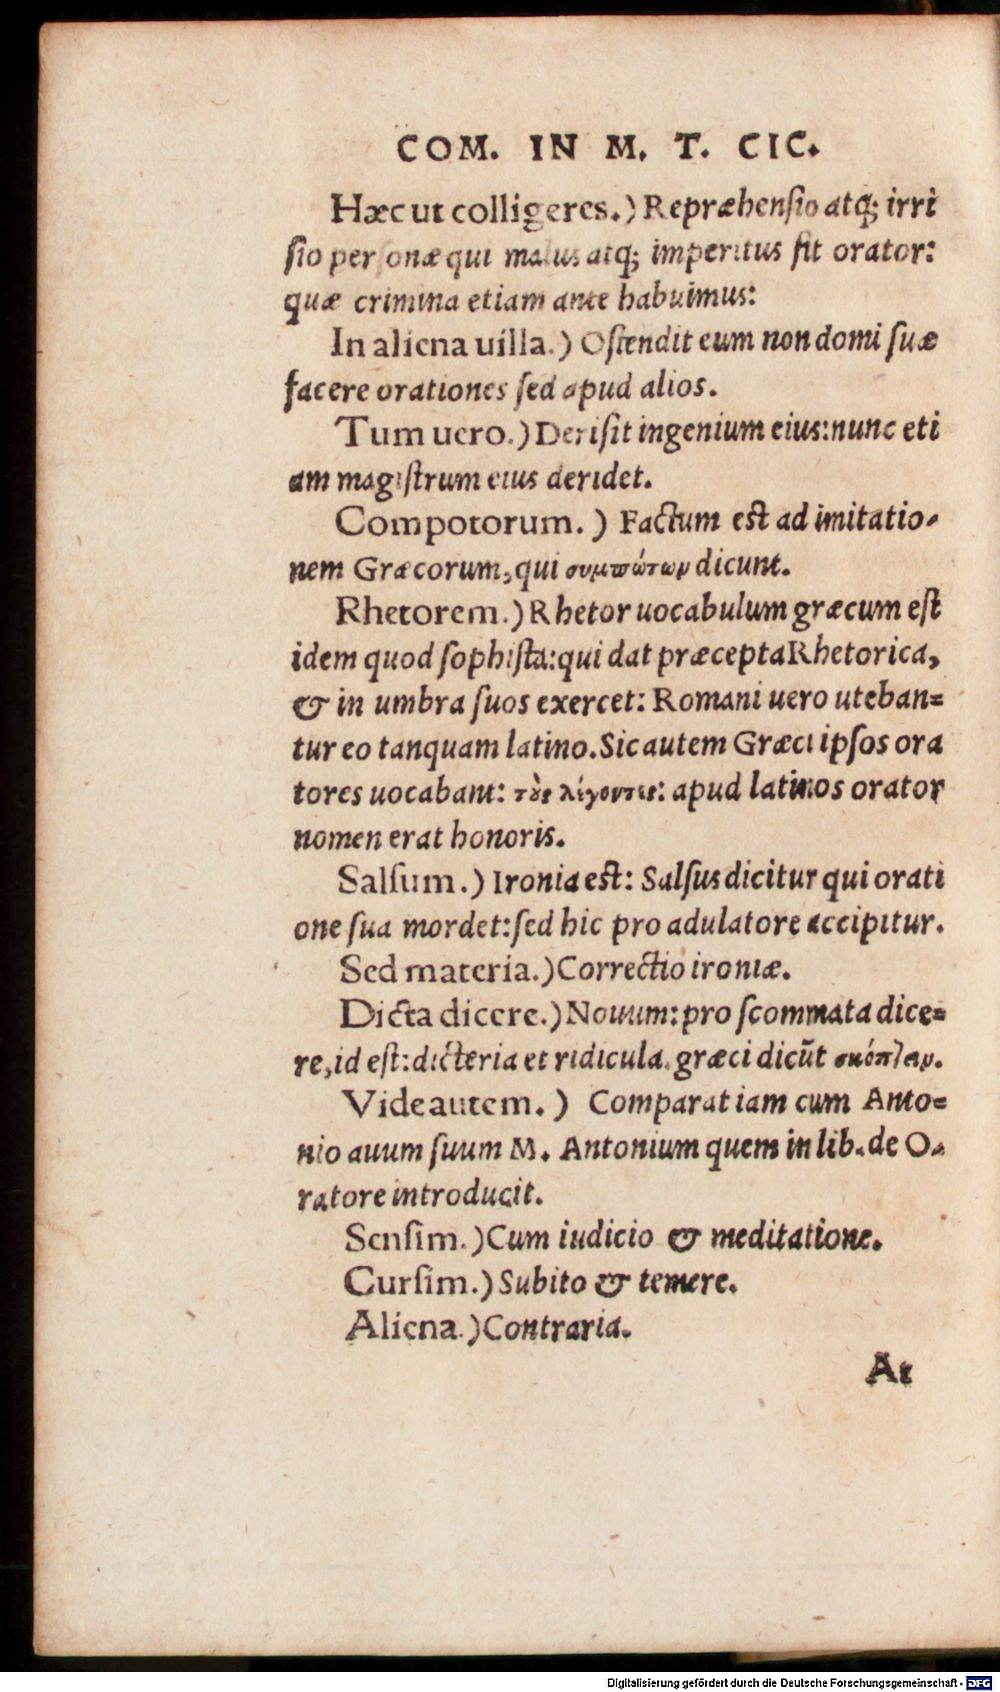 COM. IN M. T. CIC.
Hæc ut colligeres.) Repræhenſio atq; irri
ſio perſonæ qui malus atq; imperitus ſit orator:
quæ crimina etiam ante habuimus:
In aliena uilla.) Oſtendit eum non domi ſuæ
facere orationes ſed apud alios.
Tum uero.) Deriſit ingenium eius: nunc eti
am magiſtrum eius deridet.
Compotorum.) Factum eſt ad imitatio-
nem Græcorum, qui συμπώτωρ dicunt.
Rhetorem.) Rhetor uocabulum græcum eſt
idem quod ſophiſta: qui dat præcepta Rhetorica,
& in umbra ſuos exercet: Romani uero uteban=
tur eo tanquam latino. Sic autem Græci ipſos ora
tores uocabant: apud latinos orator
nomen erat honoris.
Salſum.) Ironia eſt: Salſus dicitur qui orati
one ſua mordet: ſed hic pro adulatore accipitur.
Sed materia.) Correctio ironiæ.
Dicta dicere.) Nouum: pro ſcommata dice=
re, id eſt: dicteria et ridicula. græci dicūt
Vide autem.) Comparat iam cum Anto=
nio auum ſuum M. Antonium quem in lib. de O-
ratore introducit.
Senſim.) Cum iudicio & meditatione.
Curſim.) Subito & temere.
Aliena.) Contraria.
At
Digitalisierung gefördert durch die Deutsche Forschungsgemeinschaft - DFG